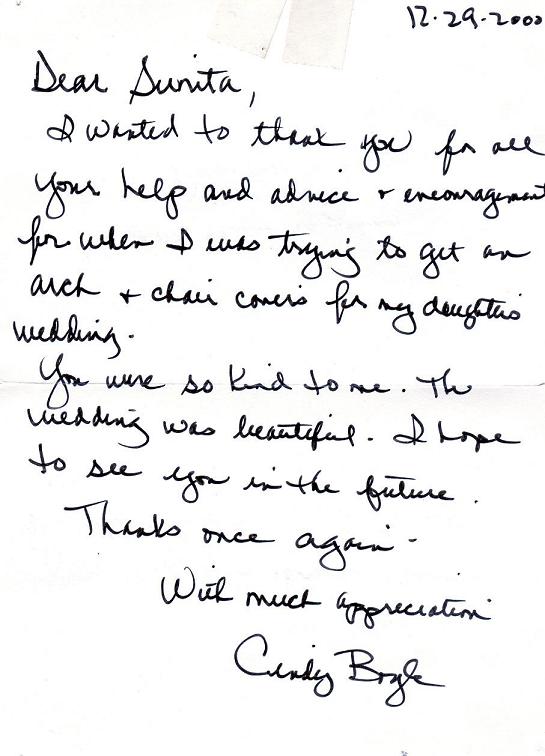 12·29·2000
Dear Sunita,
I wanted to thank you for all
your help and advice + encouragement
for when I was trying to get an
arch + chair covers for my daughter's
wedding.
You were so kind to me. The
wedding was beautiful. I hope
to see you in the future.
Thanks once again -
With much appreciation
Cindy Boyle